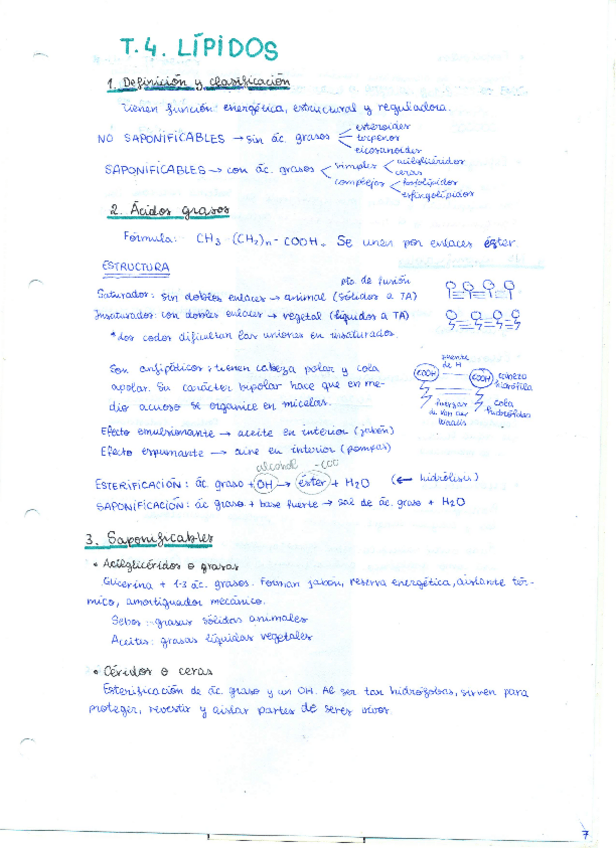 T.4. LÍPIDOS
1. Definición y clasificación
Tienen función: energética, estructural y reguladora.
NO SAPONIFICABLES → sin ác. grasos
esteroides
terpenos
eicosanoides
SAPONIFICABLES → con ác. grasos
simples
acilglicéridos
ceras
complejos
fosfolípidos
esfingolípidos
2. Ácidos grasos
Fórmula: CH3-(CH2)n-COOH. Se unen por enlaces éster.
ESTRUCTURA
pto. de fusión
Saturados: sin dobles enlaces → animal (sólidos a TA)
Insaturados: con dobles enlaces → vegetal (líquidos a TA)
*los codos dificultan las uniones en insaturados.
Son anfipáticos: tienen cabeza polar y cola
apolar. Su carácter bipolar hace que en me-
dio acuoso se organice en micelas.
puente
de H
COOH
COOH
cabeza
hidrófila
fuerzas
de Van der
Waals
cola
hidrófoba
Efecto emulsionante → aceite en interior (jabón)
Efecto espumante → aire en interior (pompas)
alcohol
-COO
ESTERIFICACIÓN: ác graso + OH → éster + H2O (← hidrólisis)
SAPONIFICACIÓN: ác graso + base fuerte → sal de ác. graso + H2O
3. Saponificables
• Acilglicéridos o grasas
Glicerina + 1-3 ác. grasos. Forman jabón, reserva energética, aislante tér-
mico, amortiguador mecánico.
Sebos: grasas sólidas animales
Aceites: grasas líquidas vegetales
• Céridos o ceras
Esterificación de ác. graso y un OH. Al ser tan hidrófobas, sirven para
proteger, revestir y aislar partes de seres vivos.
7